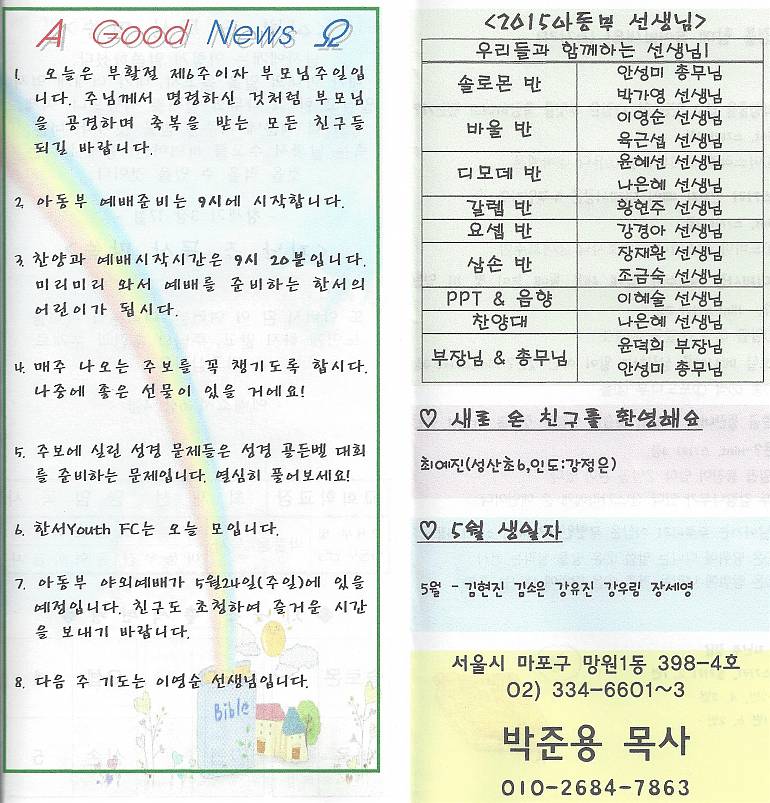 A Good News Ω
1. 오늘은 부활절 제6주이자 부모님주일입
니다. 주님께서 명령하신 것처럼 부모님
을 공경하며 축복을 받는 모든 친구들
되길 바랍니다.
2. 아동부 예배준비는 9시에 시작합니다.
3. 찬양과 예배시작시간은 9시 20분입니다.
미리미리 와서 예배를 준비하는 한서의
어린이가 됩시다.
4. 매주 나오는 주보를 꼭 챙기도록 합시다.
나중에 좋은 선물이 있을 거에요!
5. 주보에 실린 성경 문제들은 성경 골든벨 대회
를 준비하는 문제입니다. 열심히 풀어보세요!
6. 한서Youth FC는 오늘 모입니다.
7. 아동부 야외예배가 5월24일(주일)에 있을
예정입니다. 친구도 초청하여 즐거운 시간
을 보내기 바랍니다.
8. 다음 주 기도는 이영순 선생님입니다.
Bible
<2015아동부 선생님>
우리들과 함께하는 선생님!
솔로몬 반
안성미 총무님
박가영 선생님
바울 반
이영순 선생님
육근섭 선생님
디모데 반
윤혜선 선생님
나은혜 선생님
갈렙 반 황현주 선생님
요셉 반 강경아 선생님
삼손 반
장재환 선생님
조금숙 선생님
PPT & 음향 이혜술 선생님
찬양대 나은혜 선생님
부장님 & 총무님
윤덕희 부장님
안성미 총무님
♡ 새로 온 친구를 환영해요
최예진(성산초6,인도:강정은)
♡ 5월 생일자
5월 - 김현진 김소은 강유진 강우림 장세영
서울시 마포구 망원1동 398-4호
02) 334-6601~3
박준용 목사
010-2684-7863